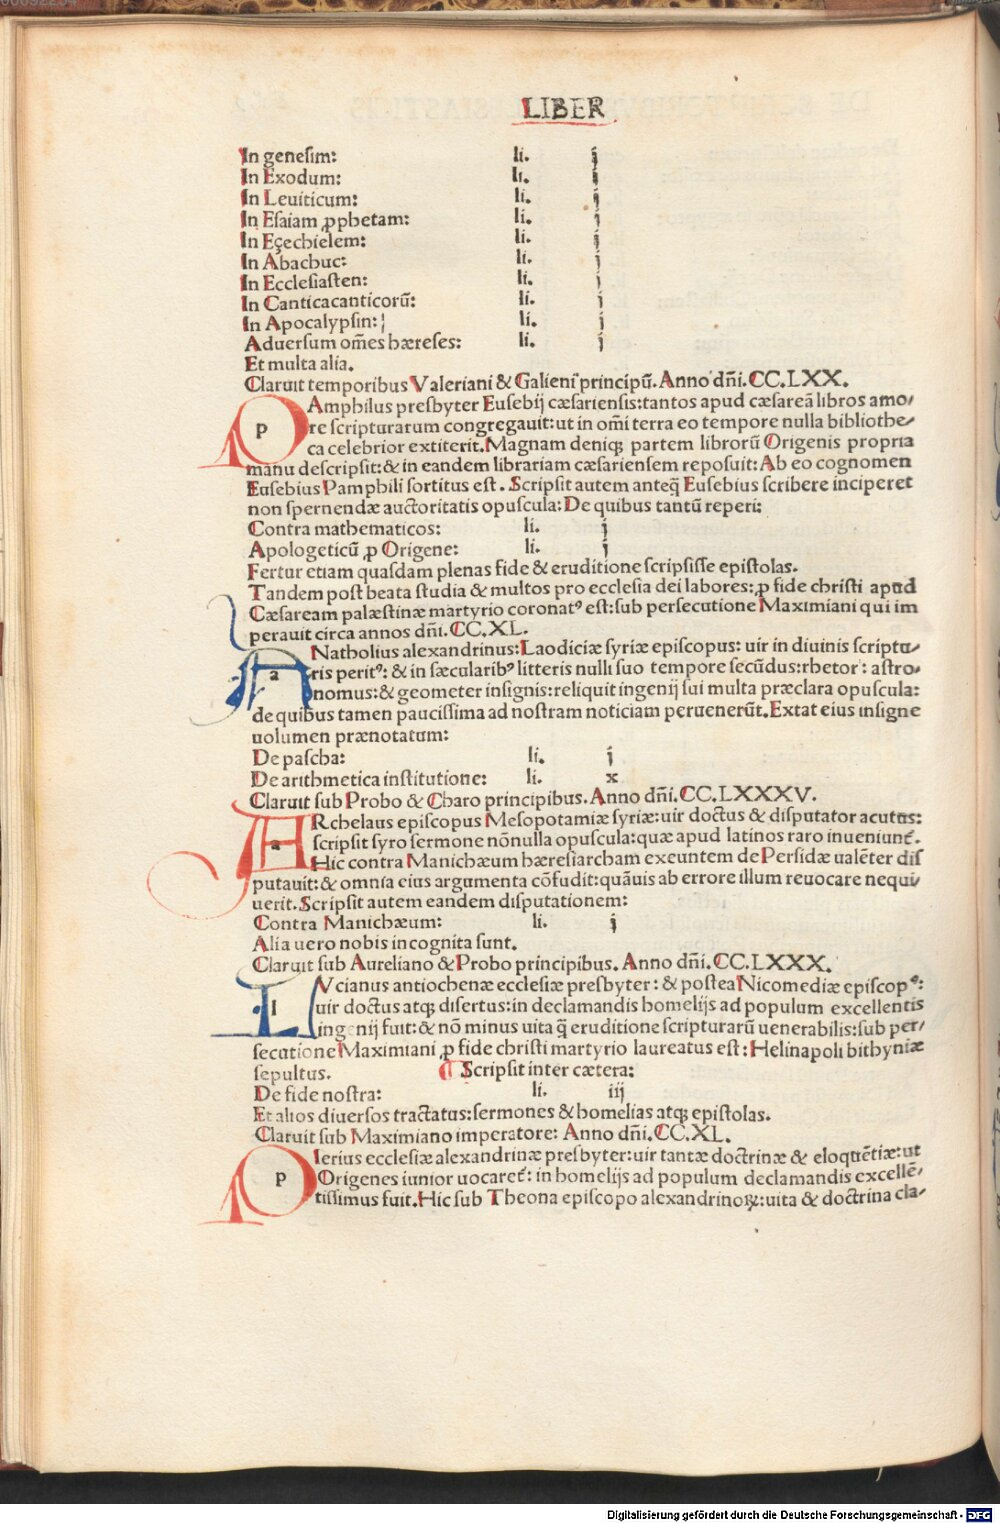 LIBER
In genesim: li. j
In Exodum: li. j
In Leuiticum: li. j
In Esaiam ꝓphetam: li. j
In Eçechielem: li. j
In Abachuc: li. j
In Ecclesiasten: li. j
In Canticacanticorũ: li. j
In Apocalypsin: li. j
Aduersum om̃es hæreses: li. j
Et multa alia.
Claruit temporibus Valeriani & Galieni principũ. Anno dñi. CC.LXX.
PAmphilus presbyter Eusebij cæsariensis: tantos apud cæsareã libros amo/
re scripturarum congregauit: ut in om̃i terra eo tempore nulla bibliothe/
ca celebrior extiterit. Magnam deniqꝫ partem librorũ Origenis propria
manu descripsit: & in eandem librariam cæsariensem reposuit: Ab eo cognomen
Eusebius Pamphili sortitus est. Scripsit autem anteq̃ Eusebius scribere inciperet
non spernendæ auctoritatis opuscula: De quibus tantũ reperi:
Contra mathematicos: li. j
Apologeticũ ꝓ Origene: li. j
Fertur etiam quasdam plenas fide & eruditione scripsisse epistolas.
Tandem post beata studia & multos pro ecclesia dei labores: ꝓ fide christi apud
Cæsaream palæstinæ martyrio coronatꝰ est: sub persecutione Maximiani qui im
perauit circa annos dñi. CC.XL.
aNatholius alexandrinus: Laodiciæ syriæ episcopus: uir in diuinis scriptu/
ris peritꝰ: & in sæcularibꝰ litteris nulli suo tempore secũdus: rhetor: astro/
nomus: & geometer insignis: reliquit ingenij sui multa præclara opuscula:
de quibus tamen paucissima ad nostram noticiam peruenerũt. Extat eius insigne
uolumen prænotatum:
De pascha: li. j
De arithmetica institutione: li. x
Claruit sub Probo & Charo principibus. Anno dñi. CC.LXXXV.
aRchelaus episcopus Mesopotamiæ syriæ: uir doctus & disputator acutus:
scripsit syro sermone nõnulla opuscula: quæ apud latinos raro inueniunt̃.
Hic contra Manichæum hæresiarcham exeuntem de Persidæ ualẽter dis
putauit: & omnia eius argumenta cõfudit: quãuis ab errore illum reuocare nequi/
uerit. Scripsit autem eandem disputationem:
Contra Manichæum: li. j
Alia uero nobis incognita sunt.
Claruit sub Aureliano & Probo principibus. Anno dñi. CC.LXXX.
lVcianus antiochenæ ecclesiæ presbyter: & postea Nicomediæ episcopꝰ:
uir doctus atqꝫ disertus: in declamandis homelijs ad populum excellentis
ingenij fuit: & nõ minus uita q̃ eruditione scripturarũ uenerabilis: sub per/
secutione Maximiani ꝓ fide christi martyrio laureatus est: Helinapoli bithyniæ
sepultus. ¶ Scripsit inter cætera:
De fide nostra: li. iij
Et alios diuersos tractatus: sermones & homelias atqꝫ epistolas.
Claruit sub Maximiano imperatore: Anno dñi. CC.XL.
pIerius ecclesiæ alexandrinæ presbyter: uir tantæ doctrinæ & eloquẽtiæ: ut
Origenes iunior uocaret̃: in homelijs ad populum declamandis excellẽ/
tissimus fuit. Hic sub Theona episcopo alexandrinoꝝ: uita & doctrina cla/
Digitalisierung gefördert durch die Deutsche Forschungsgemeinschaft - DFG